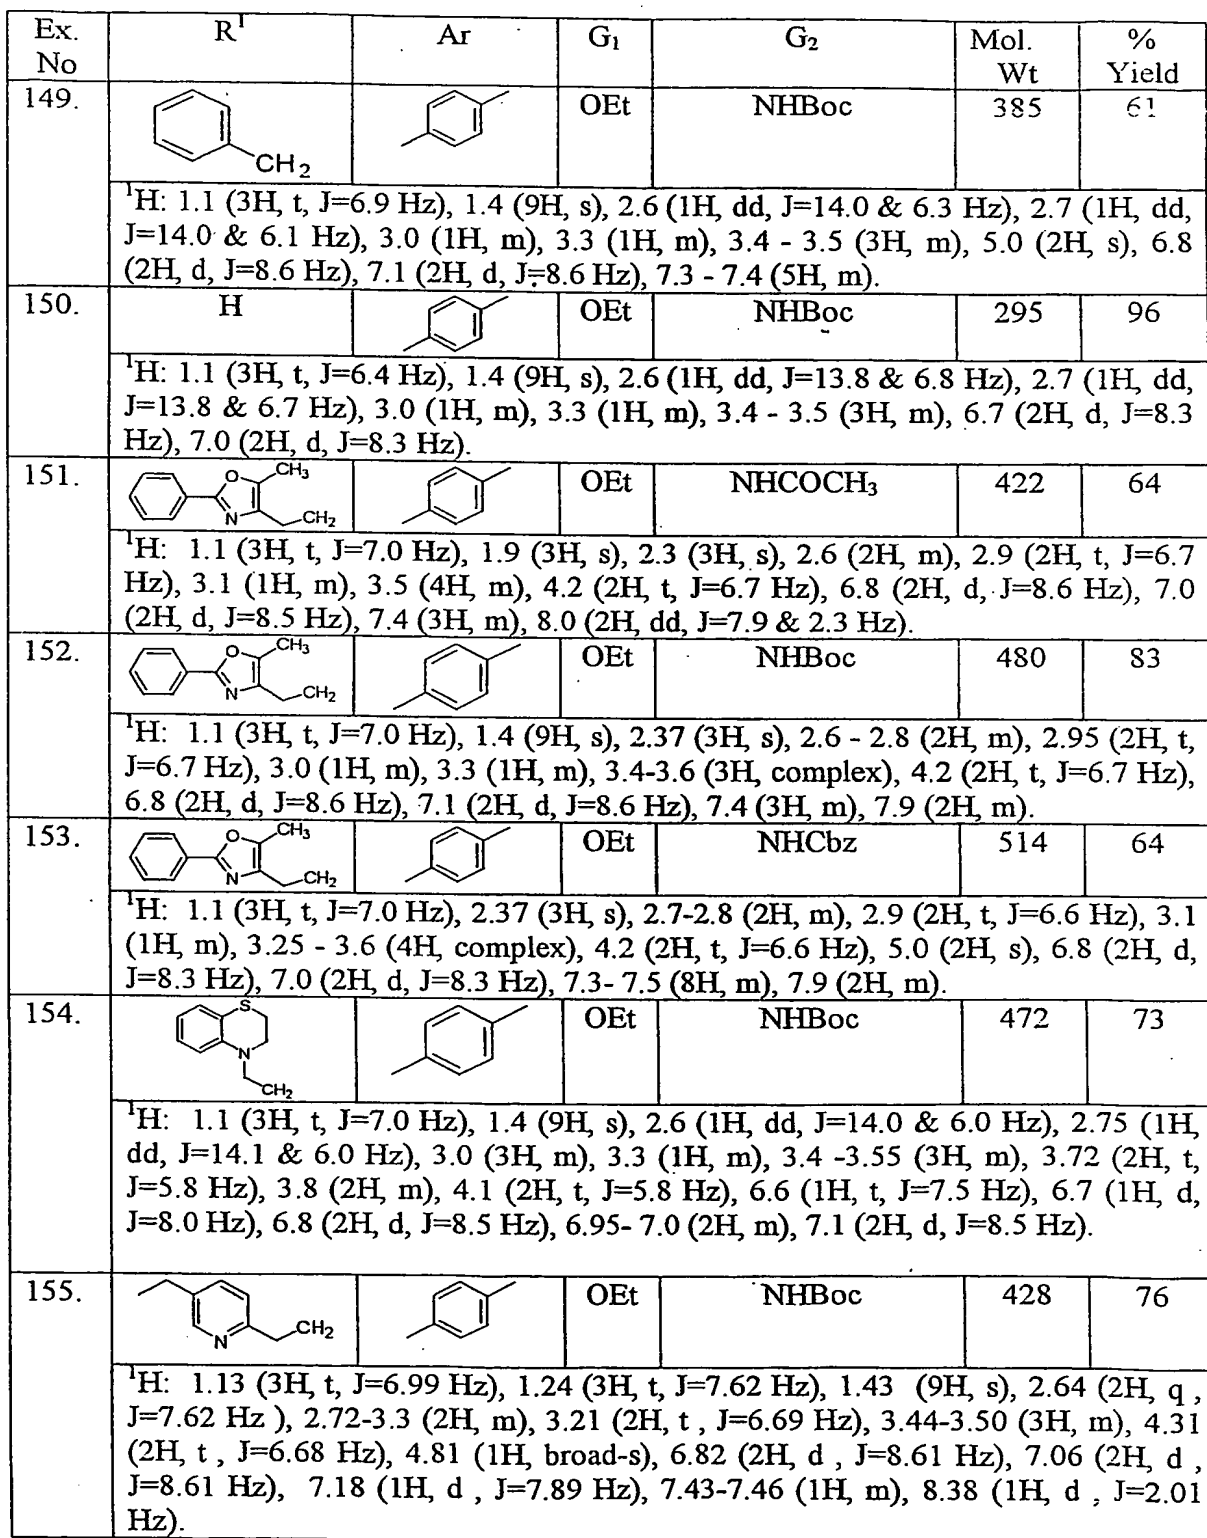 Ex. No R¹ Ar G₁ G₂ Mol. Wt % Yield
149. CH₂ OEt NHBoc 385 61
¹H: 1.1 (3H, t, J=6.9 Hz), 1.4 (9H, s), 2.6 (1H, dd, J=14.0 & 6.3 Hz), 2.7 (1H, dd,
J=14.0 & 6.1 Hz), 3.0 (1H, m), 3.3 (1H, m), 3.4 - 3.5 (3H, m), 5.0 (2H, s), 6.8
(2H, d, J=8.6 Hz), 7.1 (2H, d, J=8.6 Hz), 7.3 - 7.4 (5H, m).
150. H OEt NHBoc 295 96
¹H: 1.1 (3H, t, J=6.4 Hz), 1.4 (9H, s), 2.6 (1H, dd, J=13.8 & 6.8 Hz), 2.7 (1H, dd,
J=13.8 & 6.7 Hz), 3.0 (1H, m), 3.3 (1H, m), 3.4 - 3.5 (3H, m), 6.7 (2H, d, J=8.3
Hz), 7.0 (2H, d, J=8.3 Hz).
151. O CH₃ N CH₂ OEt NHCOCH₃ 422 64
¹H: 1.1 (3H, t, J=7.0 Hz), 1.9 (3H, s), 2.3 (3H, s), 2.6 (2H, m), 2.9 (2H, t, J=6.7
Hz), 3.1 (1H, m), 3.5 (4H, m), 4.2 (2H, t, J=6.7 Hz), 6.8 (2H, d, J=8.6 Hz), 7.0
(2H, d, J=8.5 Hz), 7.4 (3H, m), 8.0 (2H, dd, J=7.9 & 2.3 Hz).
152. O CH₃ N CH₂ OEt NHBoc 480 83
¹H: 1.1 (3H, t, J=7.0 Hz), 1.4 (9H, s), 2.37 (3H, s), 2.6 - 2.8 (2H, m), 2.95 (2H, t,
J=6.7 Hz), 3.0 (1H, m), 3.3 (1H, m), 3.4-3.6 (3H, complex), 4.2 (2H, t, J=6.7 Hz),
6.8 (2H, d, J=8.6 Hz), 7.1 (2H, d, J=8.6 Hz), 7.4 (3H, m), 7.9 (2H, m).
153. O CH₃ N CH₂ OEt NHCbz 514 64
¹H: 1.1 (3H, t, J=7.0 Hz), 2.37 (3H, s), 2.7-2.8 (2H, m), 2.9 (2H, t, J=6.6 Hz), 3.1
(1H, m), 3.25 - 3.6 (4H, complex), 4.2 (2H, t, J=6.6 Hz), 5.0 (2H, s), 6.8 (2H, d,
J=8.3 Hz), 7.0 (2H, d, J=8.3 Hz), 7.3- 7.5 (8H, m), 7.9 (2H, m).
154. S N CH₂ OEt NHBoc 472 73
¹H: 1.1 (3H, t, J=7.0 Hz), 1.4 (9H, s), 2.6 (1H, dd, J=14.0 & 6.0 Hz), 2.75 (1H,
dd, J=14.1 & 6.0 Hz), 3.0 (3H, m), 3.3 (1H, m), 3.4 -3.55 (3H, m), 3.72 (2H, t,
J=5.8 Hz), 3.8 (2H, m), 4.1 (2H, t, J=5.8 Hz), 6.6 (1H, t, J=7.5 Hz), 6.7 (1H, d,
J=8.0 Hz), 6.8 (2H, d, J=8.5 Hz), 6.95- 7.0 (2H, m), 7.1 (2H, d, J=8.5 Hz).
155. N CH₂ OEt NHBoc 428 76
¹H: 1.13 (3H, t, J=6.99 Hz), 1.24 (3H, t, J=7.62 Hz), 1.43 (9H, s), 2.64 (2H, q ,
J=7.62 Hz ), 2.72-3.3 (2H, m), 3.21 (2H, t , J=6.69 Hz), 3.44-3.50 (3H, m), 4.31
(2H, t , J=6.68 Hz), 4.81 (1H, broad-s), 6.82 (2H, d , J=8.61 Hz), 7.06 (2H, d ,
J=8.61 Hz), 7.18 (1H, d , J=7.89 Hz), 7.43-7.46 (1H, m), 8.38 (1H, d , J=2.01
Hz).